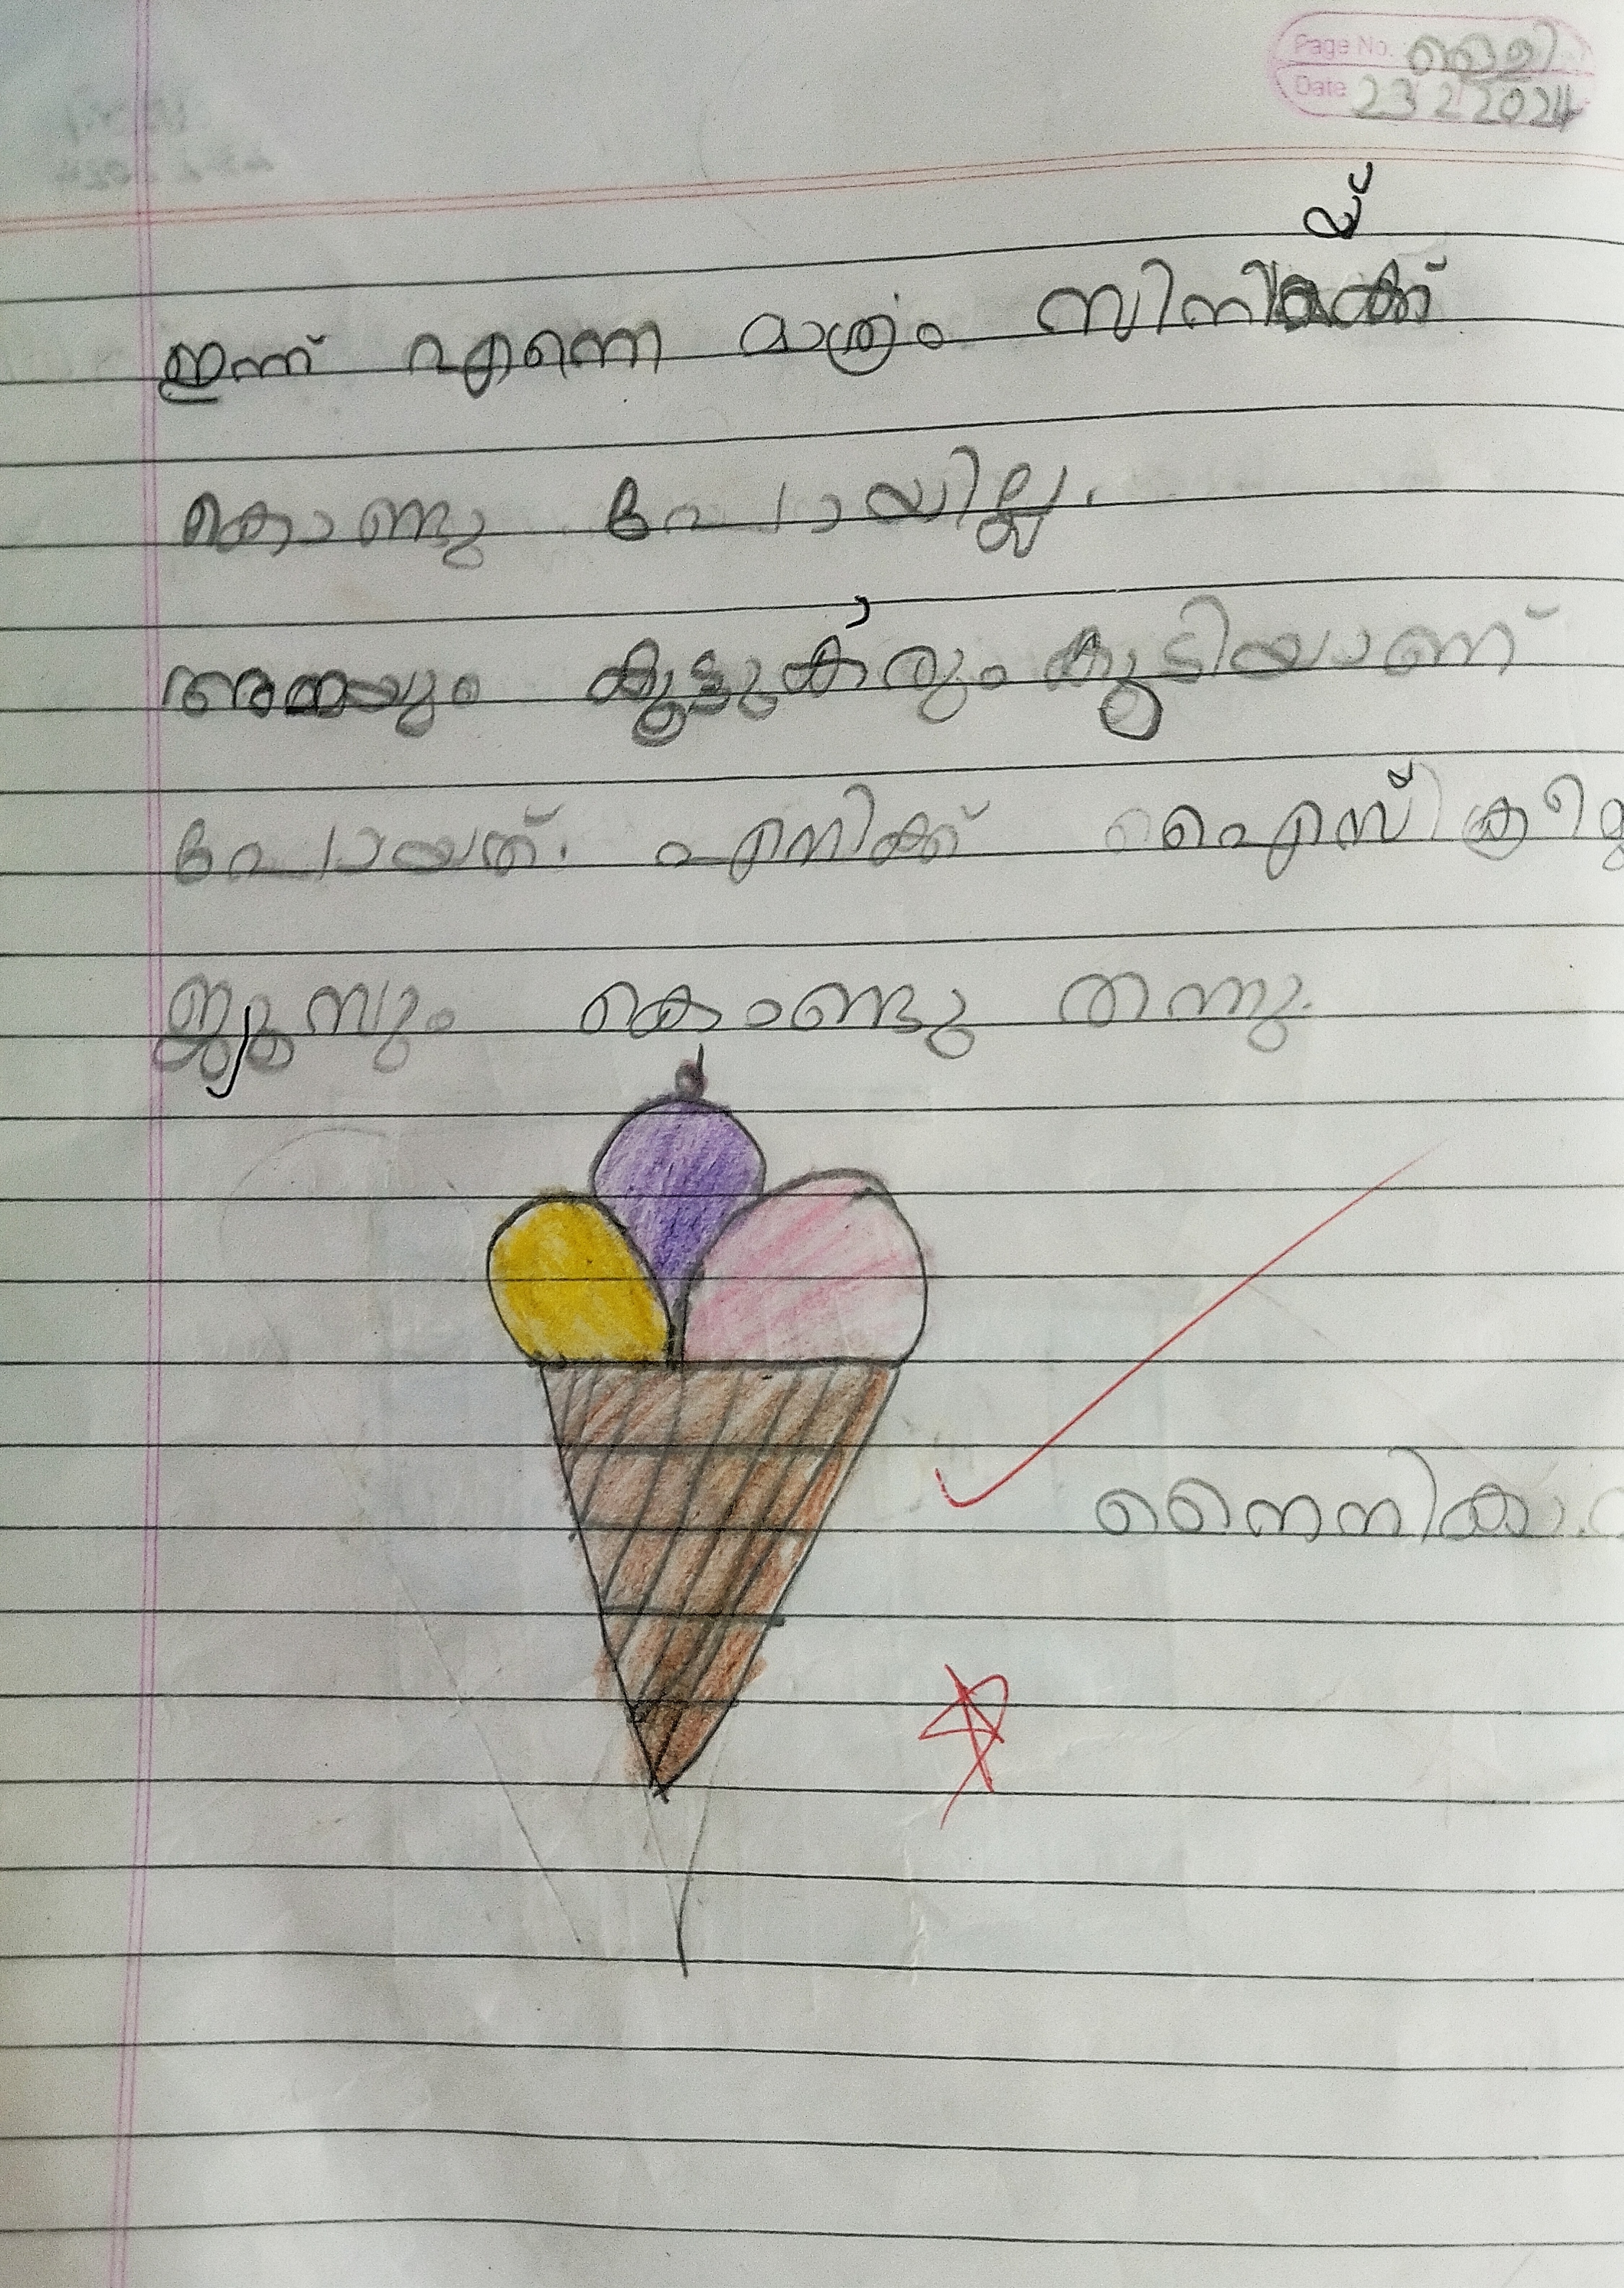 Page No. വെള്ളി
Date 23 2 2024
ഇന്ന് എന്നെ മാത്രം സിനിമക്ക്
യ്
കൊണ്ടു പോയില്ല.
അമ്മയും കൂട്ടുകാരും കൂടിയാണ്
പോയത്. എനിക്ക് ഐസ് ക്രീമ്
ജൂസും കൊണ്ടു തന്നു.
നൈനിക.